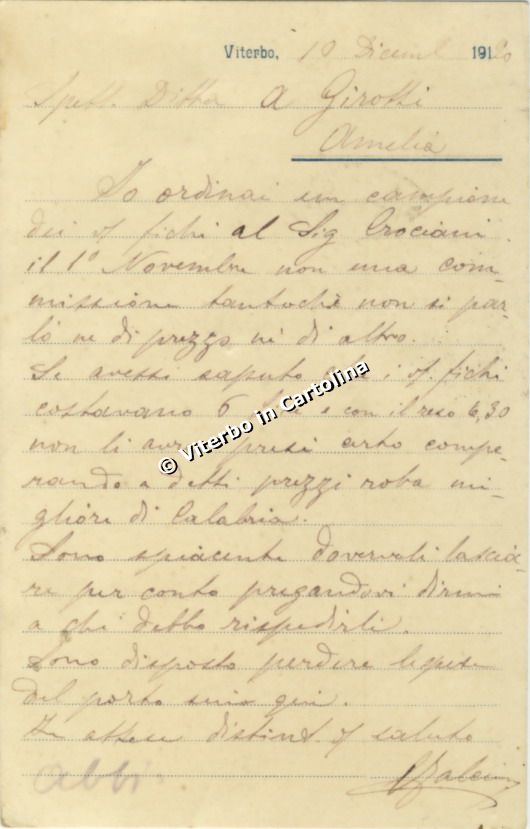 Viterbo, 10 Dicemb 1920
Spett. Ditta A Girotti
Amelia
Io ordinai un campione
dei vs/ fichi al Sig Crociani
il 1° Novembre non una com-
missione tantochè non si par-
lò ne di prezzo nè di altro.
Se avessi saputo che i vs/ fichi
costavano 6 e con il reso 6,30
non li avr presi certo compe-
rando a detti prezzi roba mi-
gliore di Calabria.
Sono spiacente doverveli lascia-
re per conto pregandovi dirmi
a chi debbo rispedirli.
Sono disposto perdere le spese
del porto sino qui.
In attesa distint. vs/ saluto
abbi
© Viterbo in Cartolina